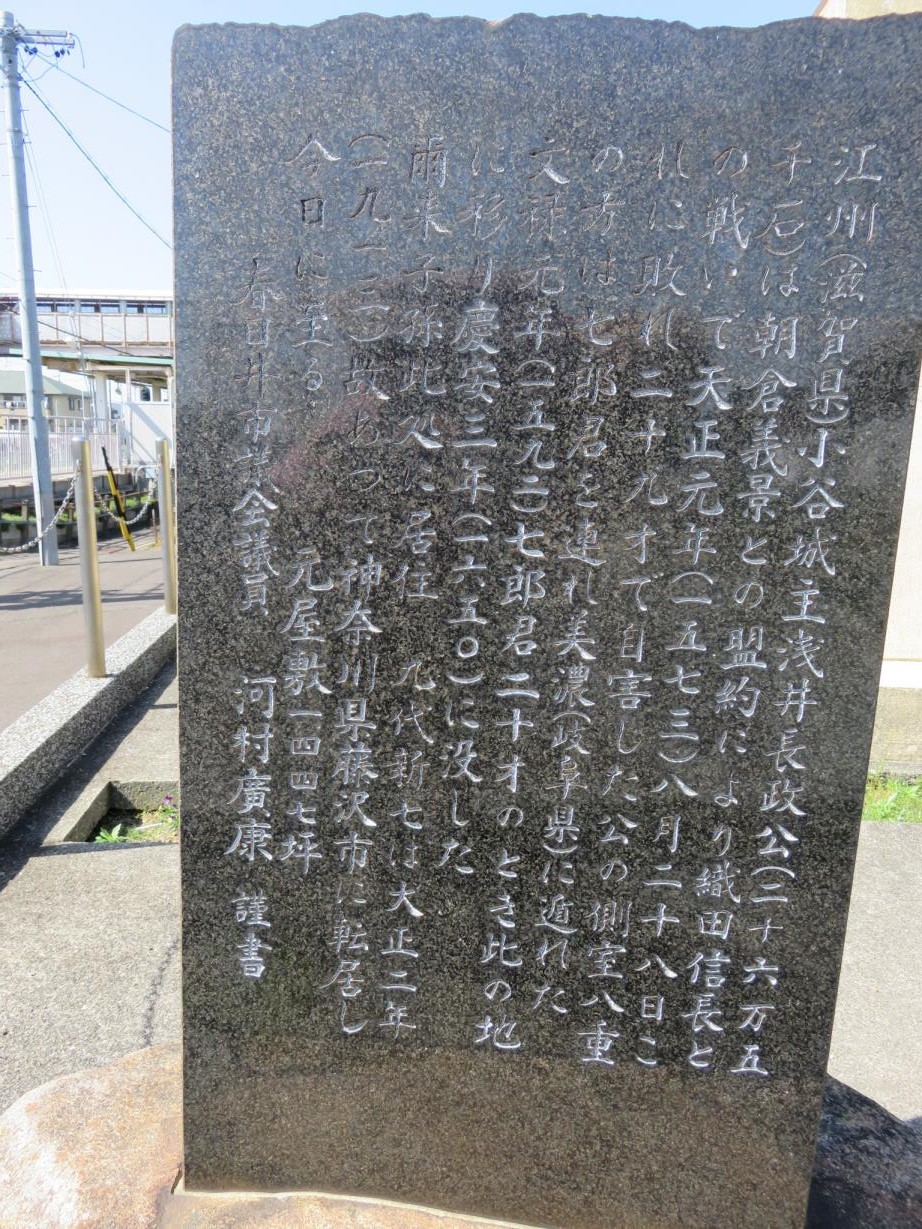 江州(滋賀県)小谷城主浅井長政公(二十六万五
千石)は朝倉義景との盟約により織田信長と
の戦いで天正元年(一五七三)八月二十八日こ
れに敗れ二十九才で自害した公の側室八重
の方は七郎君を連れ美濃(岐阜県)に遁れた
文禄元年(一五九二)七郎君二十才のとき此の地
に移り慶安三年(一六五〇)に没した
爾来子孫此処に居住 九代新七は大正二年
(一九一三)故あって神奈川県藤沢市に転居し
今日に至る 元屋敷一四四七坪
春日井市議会議員 河村廣康 謹書